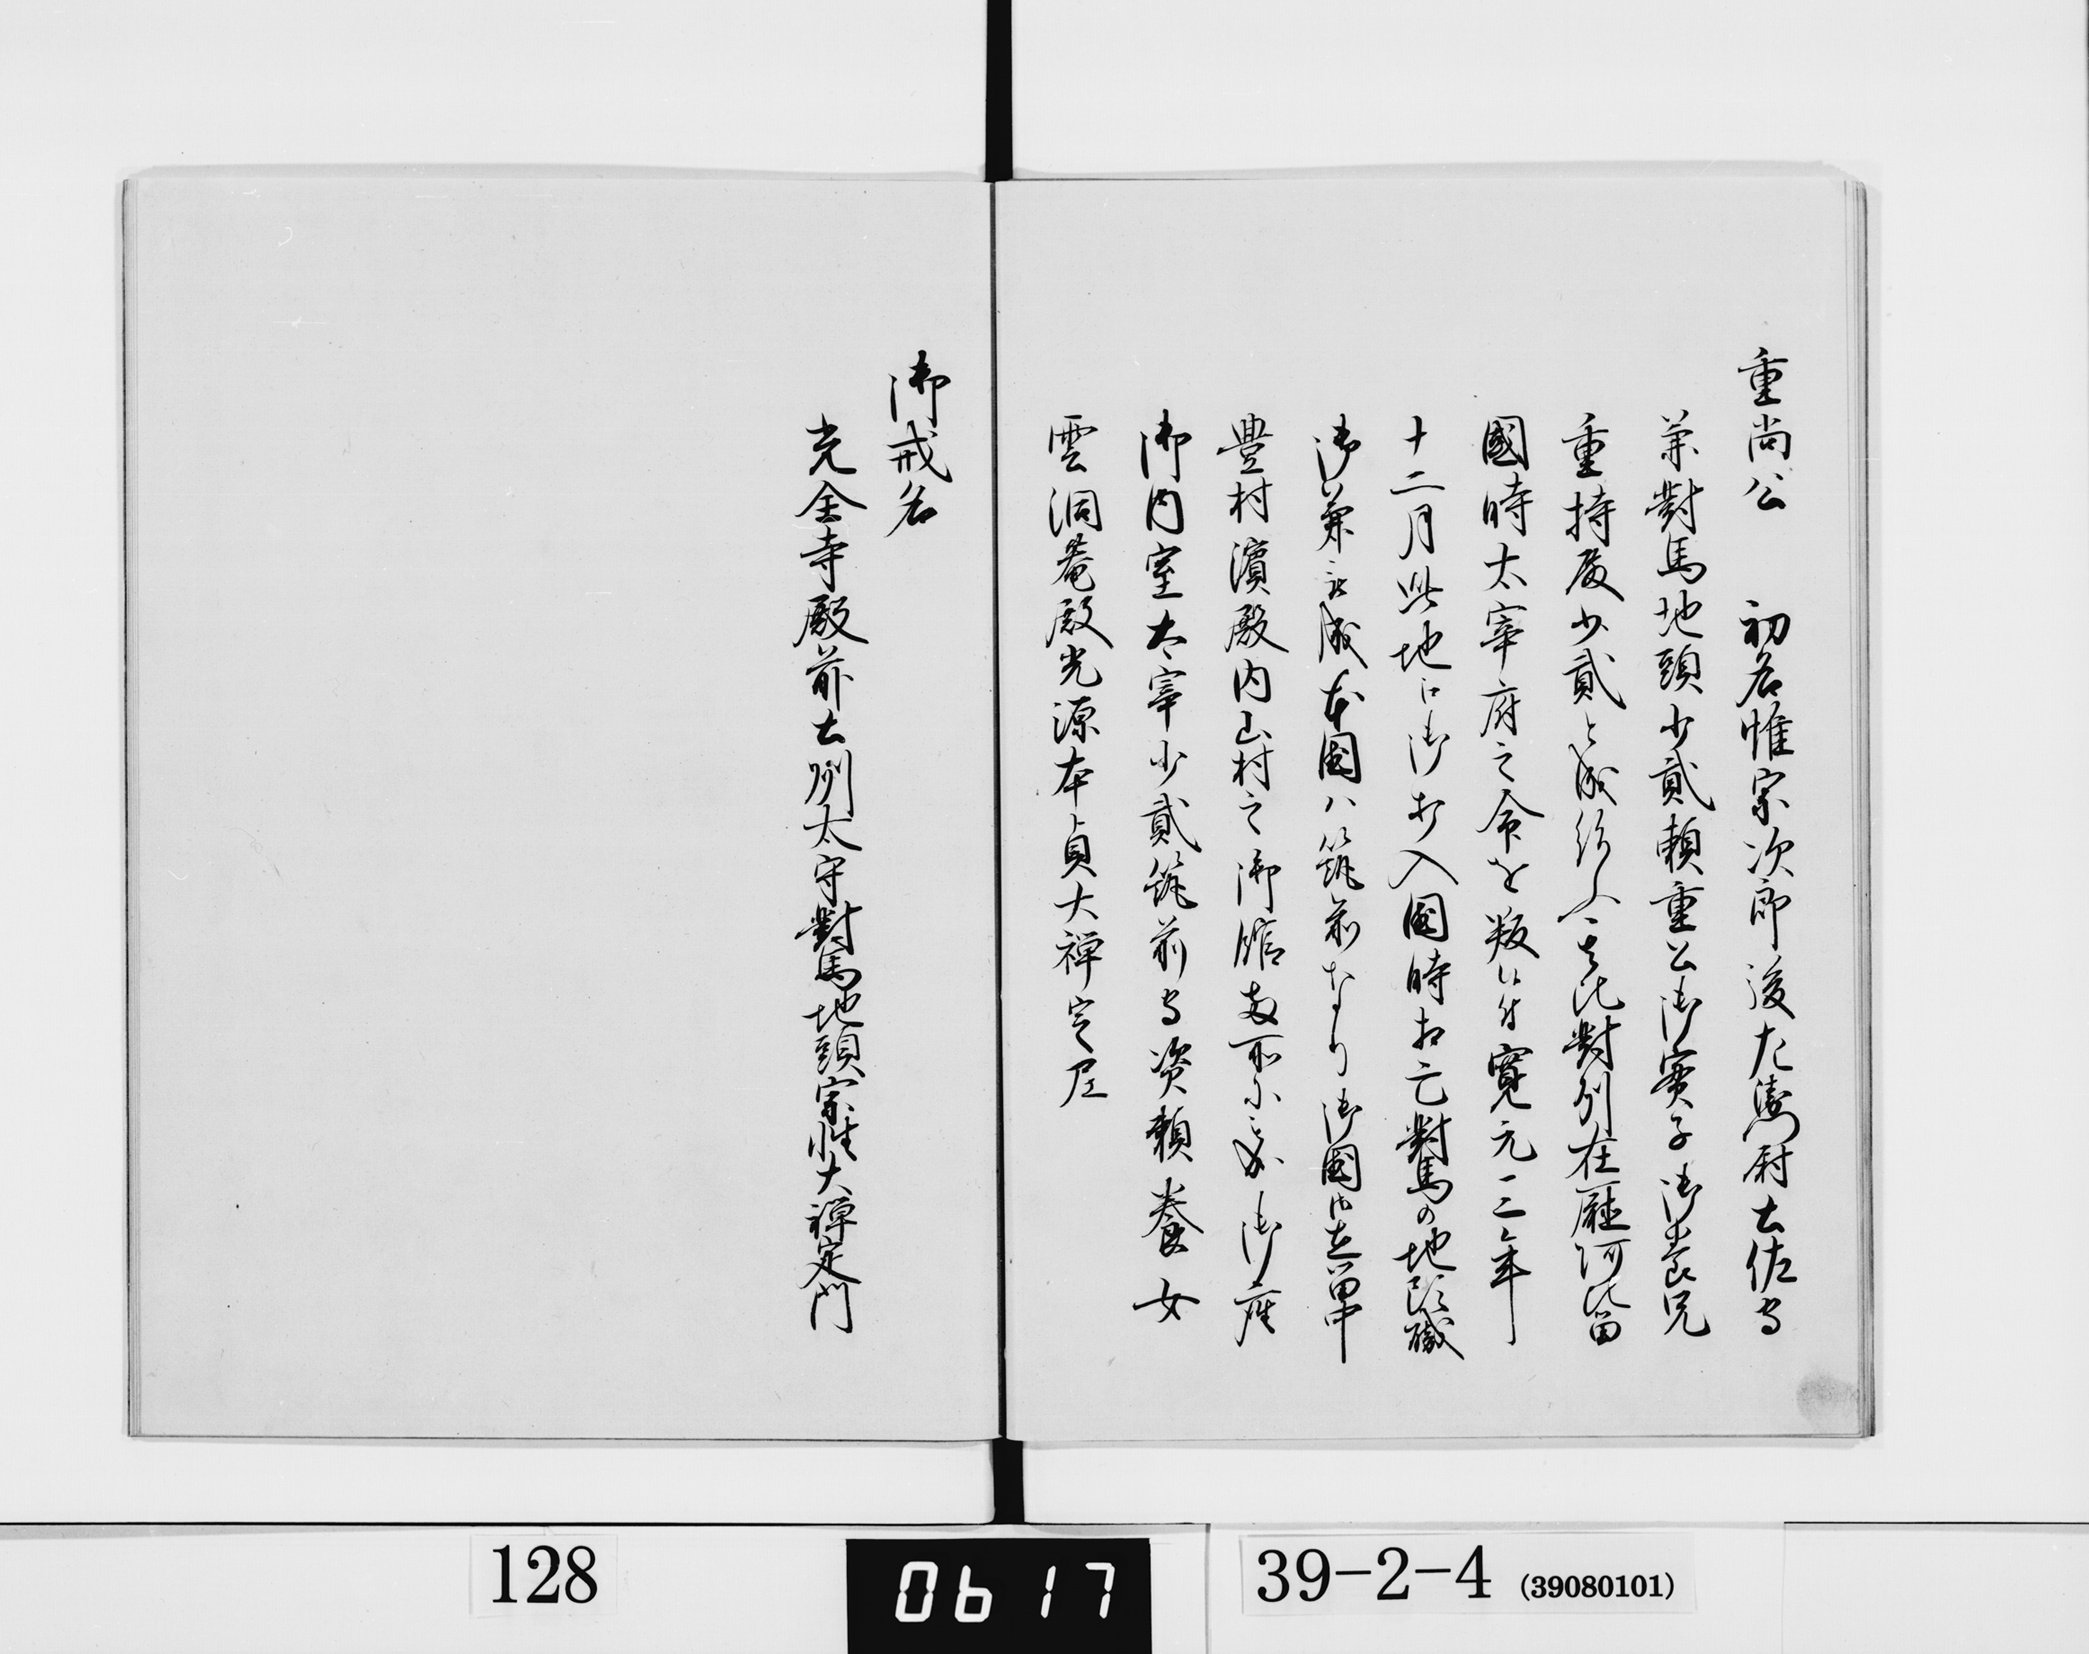 重尚公　初名惟宗次郎後左衛門尉土佐守
兼對馬地頭少貳頼重公御実子御養兄
重持後少貳と成給ふ云比對列在廳阿比留
國時太宰府之命を叛候付寛元三年
十二月此地江御打入國時相亡對馬の地頭職
御兼被成本國ハ筑前なり御國御在留中
豊村濱殿内山村之御館両所ニ御座
御内室太宰少貳筑前守資頼養女
雲洞菴殿光源本貞大禅定尼
御戒名
光全寺殿前土州太守對馬地頭宗惟大禅定門
128
0617
39-2-4 (39080101)